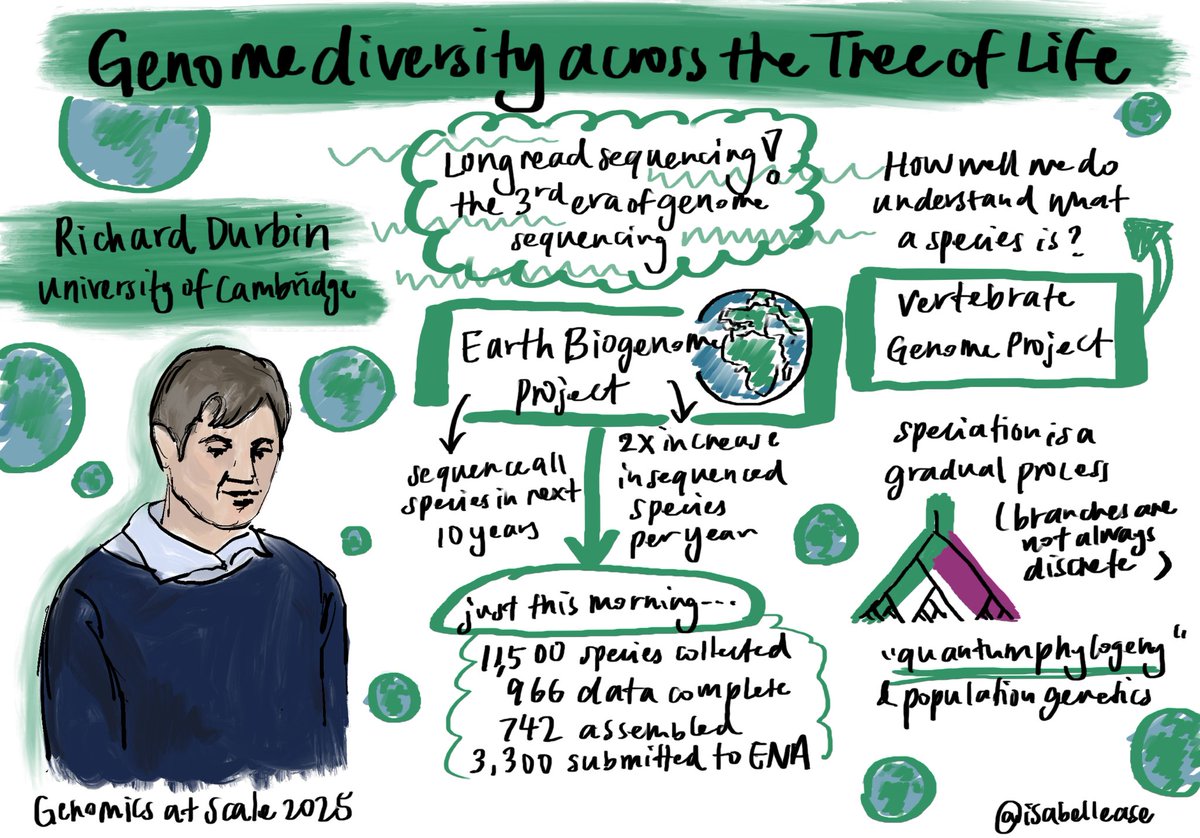 Genome diversity across the Tree of Life
Richard Durbin
University of Cambridge
Long read sequencing!
the 3rd era of genome
sequencing
How well me do
understand what
a species is?
Vertebrate
Genome Project
Earth Biogenome
Project
sequence all
species in next
10 years
2x increase
in sequenced
species
per year
just this morning...
11,500 species collected
966 data complete
742 assembled
3,300 submitted to ENA
speciation is a
gradual process
(branches are
not always
discrete)
"quantum phylogeny"
& population genetics
Genomics at Scale 2025
@isabellease